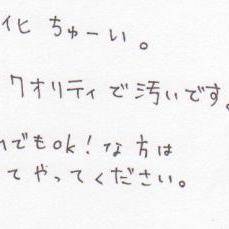 イヒ ちゅーい。
クオリティで汚いです。
でもok!な方は
てやってください。